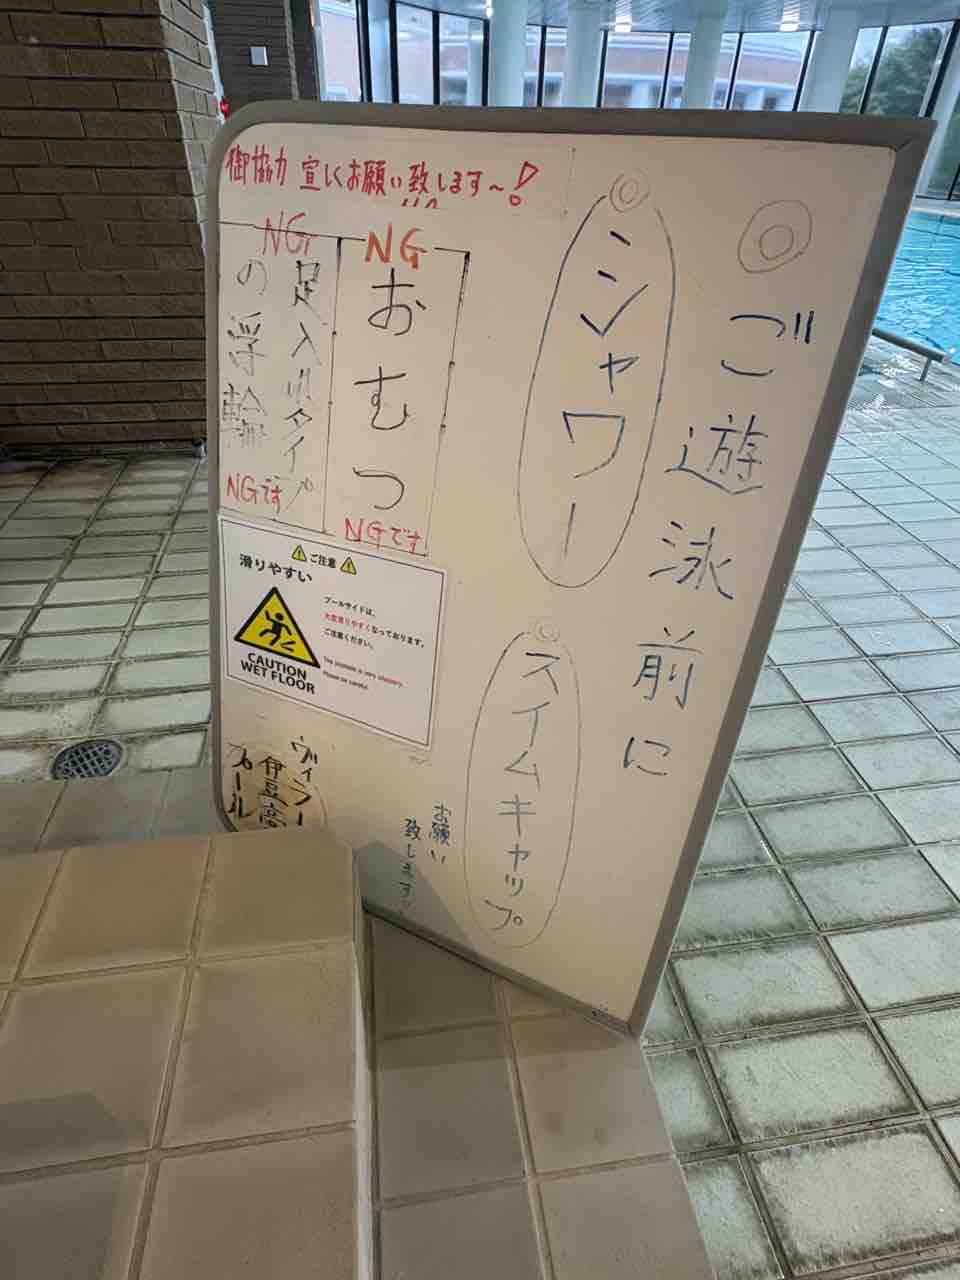 ◎ご遊泳前に
◎シャワー
◎スイムキャップ
お願い
致します。
御協力 宜しくお願い致します〜!
NG
おむつ
NGです
NG
足入れタイプ
の浮輪
NGです
ご注意
滑りやすい
プールサイドは、
大変滑りやすくなっております。
ご注意ください。
CAUTION
WET FLOOR
The poolside is very slippery.
Please be careful.
ヴィラー
伊豆高
プール